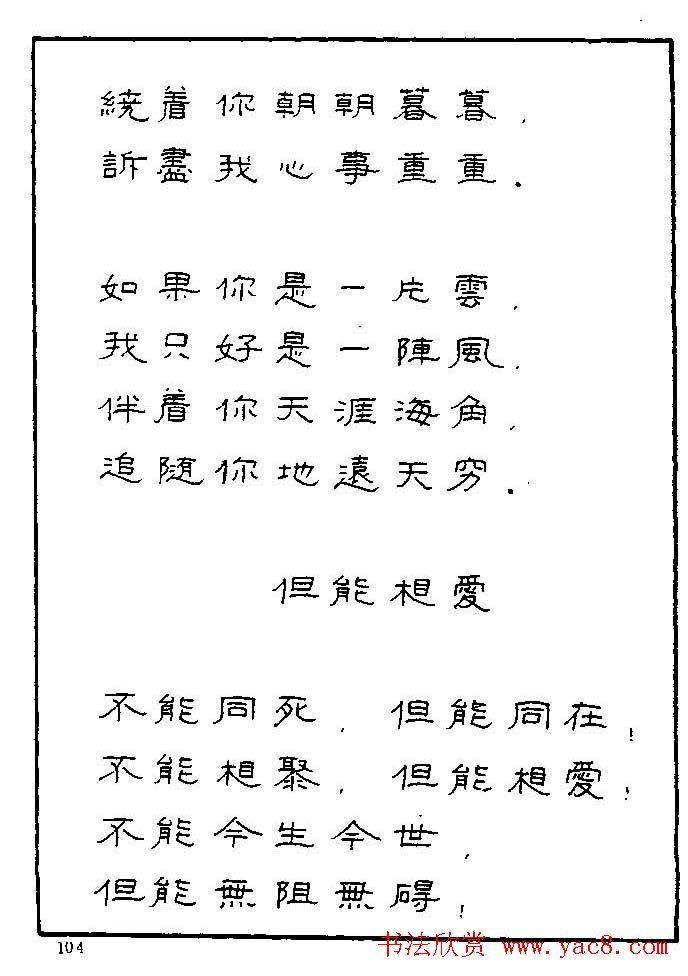 繞着你朝朝暮暮，
訴盡我心事重重．
如果你是一片雲，
我只好是一陣風，
伴着你天涯海角，
追隨你地遠天穷．
但能相愛
不能同死，但能同在！
不能相聚，但能相愛！
不能今生今世，
但能無阻無碍！
104
书法欣赏 www.yac8.com